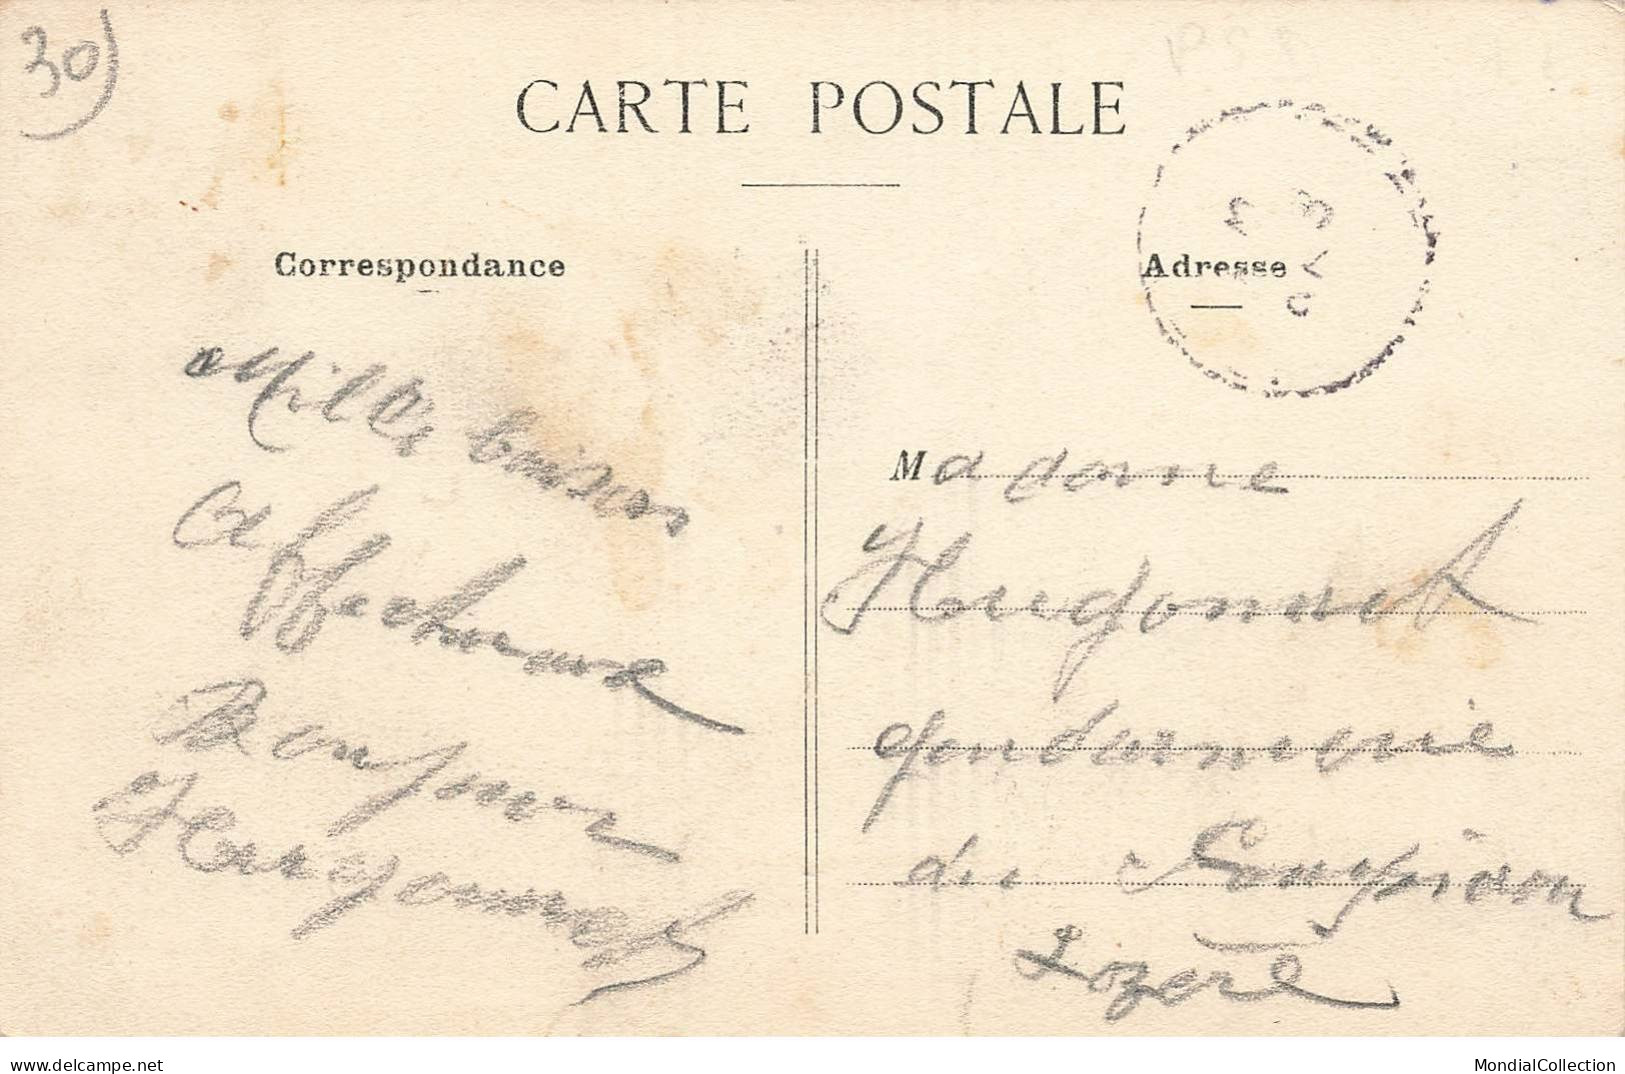 30)
CARTE POSTALE
Correspondance
Adresse
Mille baisers
affectueux
Bonjour
Hugonnet
Madame
Hugonnet
gendarmerie
du
Lozère
delcampe.net
MondialCollection